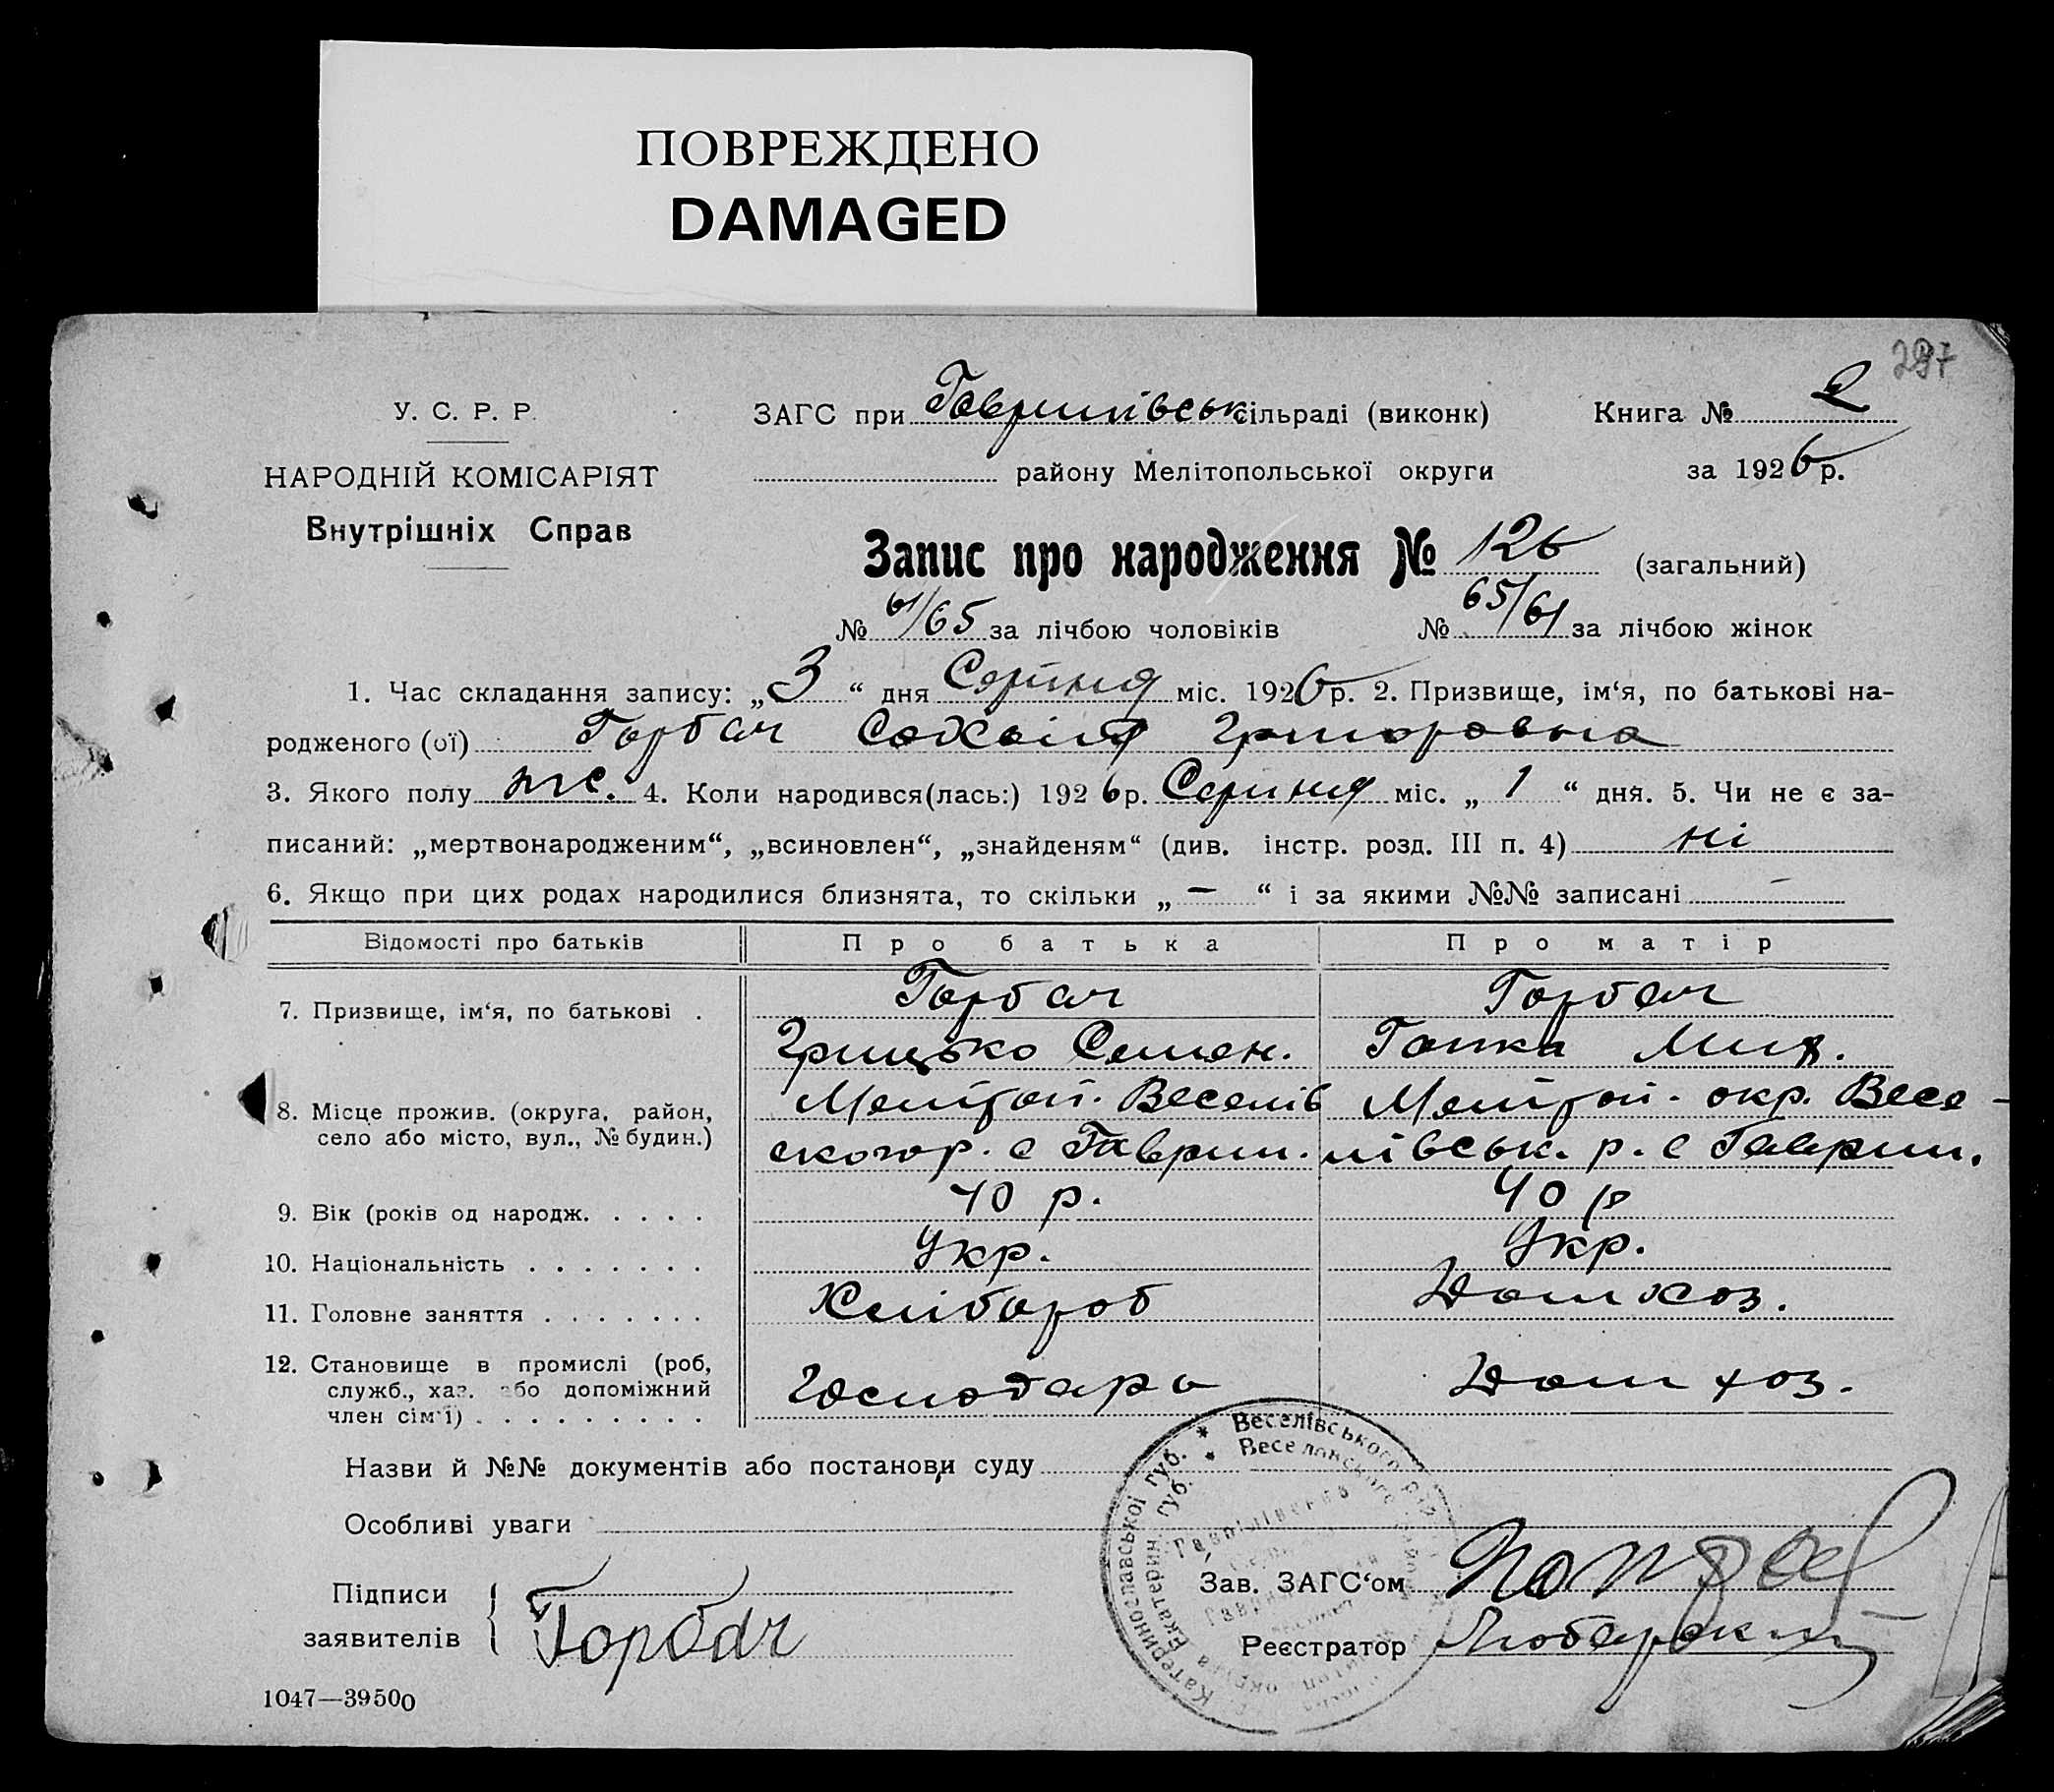 ПОВРЕЖДЕНО
DAMAGED
297
У. С. Р. Р.
НАРОДНІЙ КОМІСАРІЯТ
Внутрішніх Справ
ЗАГС при Гаврилівськ сільраді (виконк)
Книга № 2
району Мелітопольської округи
за 1926 р.
Запис про народження № 126 (загальний)
№ 61/65 за лічбою чоловіків № 65/61 за лічбою жінок
1. Час складання запису: „3“ дня Серпня міс. 1926 р. 2. Призвище, ім‘я, по батькові на-
родженого (ої) Горбач Григоровна
3. Якого полу ж. 4. Коли народився(лась:) 1926 р. Серпня міс. „1“ дня. 5. Чи не є за-
писаний: „мертвонародженим“, „всиновлен“, „знайденям“ (див. інстр. розд. III п. 4) ні
6. Якщо при цих родах народилися близнята, то скільки „—“ і за якими №№ записані —
Відомості про батьків Про батька Про матір
7. Призвище, ім‘я, по батькові . Горбач Горбач
Грицько Семен. Гапка
8. Місце прожив. (округа, район, Мелітоп. Веселів Мелітоп. окр. Весе-
село або місто, вул., № будин.) ского р. с Гаврил. лівськ. р. с Гаврил.
9. Вік (років од народж. . . . . 40 р. 40 р
10. Національність . . . . . . . Укр. Укр.
11. Головне заняття . . . . . . . Хлібороб Домхоз.
12. Становище в промислі (роб,
служб., хаз. або допоміжний Господарь Дом хоз.
член сім‘ї) . . . . . . . . .
Назви й №№ документів або постанови суду
Особливі уваги
Підписи
заявителів Горбач
Зав. ЗАГС‘ом
Реєстратор
Катеринославської губ. * Веселівського
Екатерин. губ. *
1047—39500